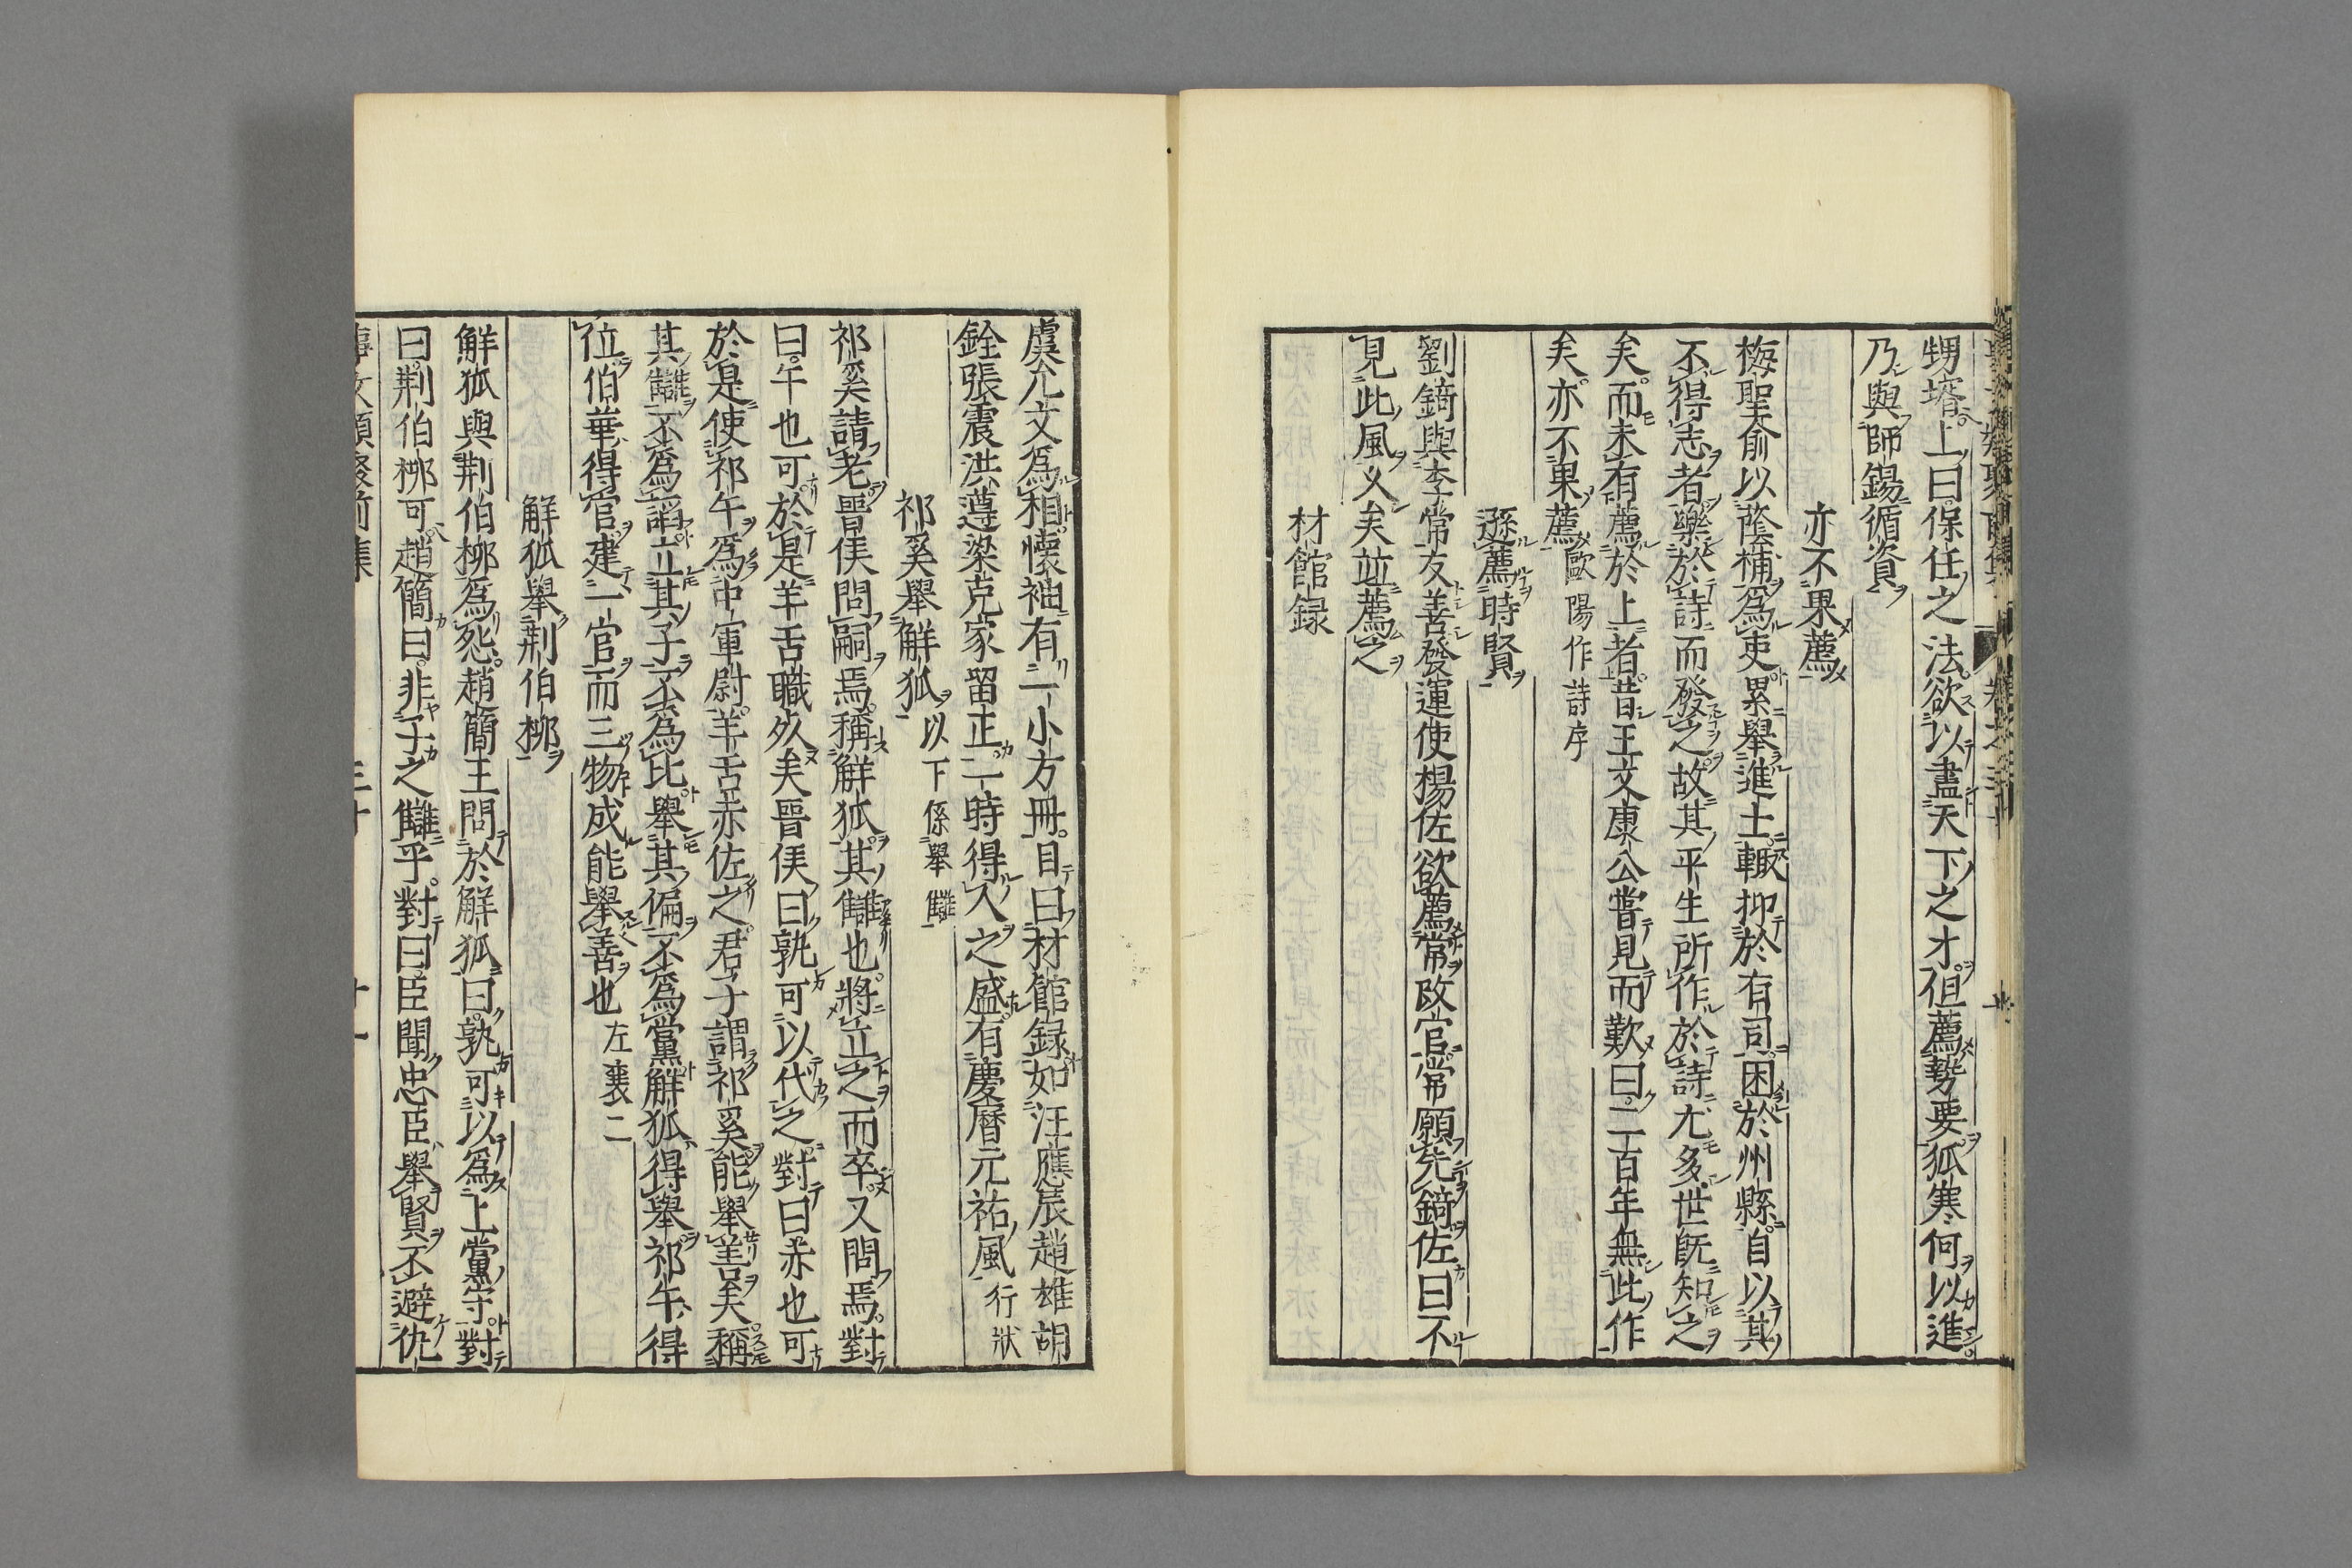 甥壻上曰保任之法欲以盡天下之才但薦勢要孤寒何以進
乃與師錫循資
亦不果薦
梅聖俞以蔭補爲吏累舉進士輙抑於有司困於州縣自以其
不得志者樂於詩而發之故其平生所作於詩尤多世旣知之
矣而未有薦於上者昔王文康公嘗見而歎曰二百年無此作
矣亦不果薦歐陽作詩序
遜薦時賢
劉錡與李常友善發運使楊佐欲薦常改官常願先錡佐曰不
見此風义矣並薦之
材館録
虞允文爲相懷袖有一小方冊目曰材館録如汪應辰趙雄胡
銓張震洪遵梁克家留正一時得人之盛有慶曆元祐風行狀
祁奚舉解狐以下係舉讎
祁奚請老晉侯問嗣焉稱解狐其讎也將立之而卒又問焉對
曰午也可於是羊舌職死矣晉侯曰孰可以代之對曰赤也可
於是使祁午爲中軍尉羊舌赤佐之君子謂祁奚能舉善矣稱
其讎不爲謟立其子不爲比舉其偏不爲黨解狐得舉祁午得
位伯華得官建一官而三物成能舉善也左襄二
解狐舉荆伯桞
解狐與荆伯桞爲怨趙簡王問於解狐曰孰可以爲上黨守對
曰荆伯桞可趙簡曰非子之讎乎對曰臣聞忠臣舉賢不避仇
事文類聚前集 三十 十一